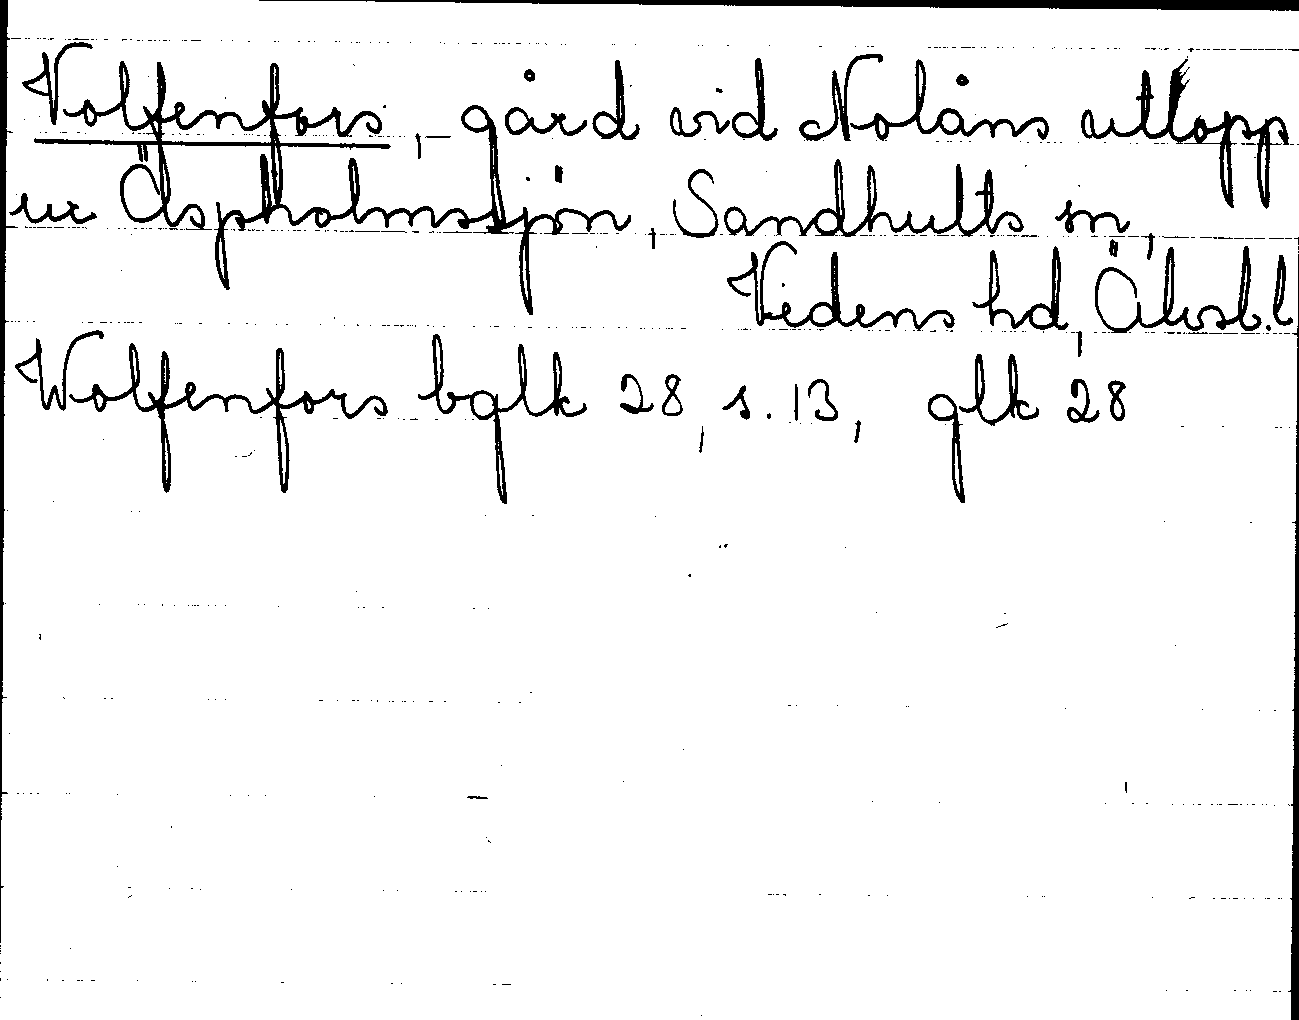 Volfenfors, – gård vid Nolåns utlopp
ur Äspholmssjön, Sandhults sn,
Vedens hd, Älvsb.l
Wolfenfors bglk 28, s. 13, glk 28